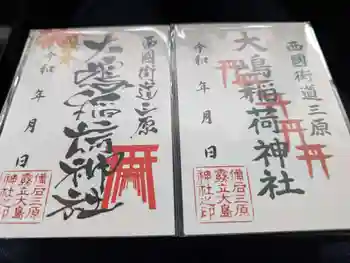 西國街道三原
大島稲荷神社
令和　年　月　日
備后三原
鎮立大島
神社之印
西國街道三原
大島稲荷神社
令和　年　月　日
備后三原
鎮立大島
神社之印